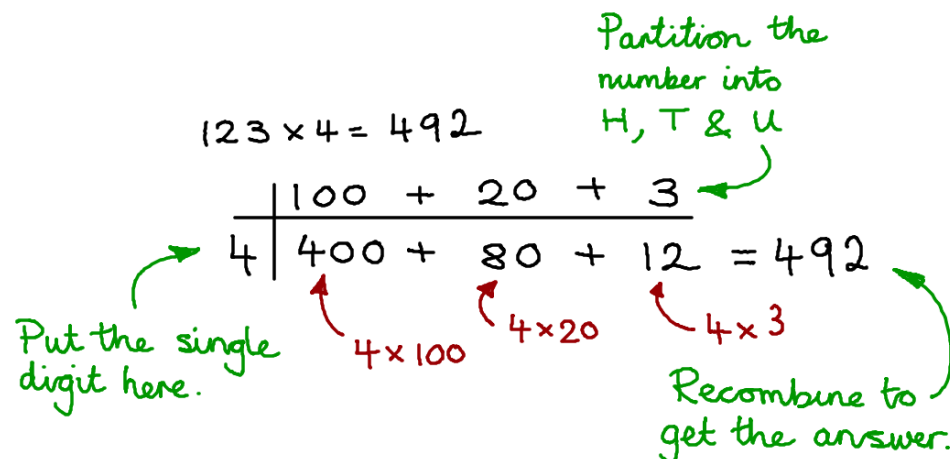 Partition the
number into
H, T & U
123 × 4 = 492
100 + 20 + 3
4 400 + 80 + 12 = 492
Put the single
digit here.
4 × 100
4 × 20
4 × 3
Recombine to
get the answer.